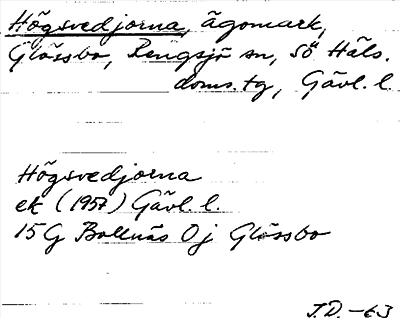 Högsvedjorna, ägomark,
Glössbo, Rengsjö sn, Sö Häls.
doms.tg, Gävl. l.
Högsvedjorna
ek (1957) Gävl. l.
15G Bollnäs 0j Glössbo
J.D. -63